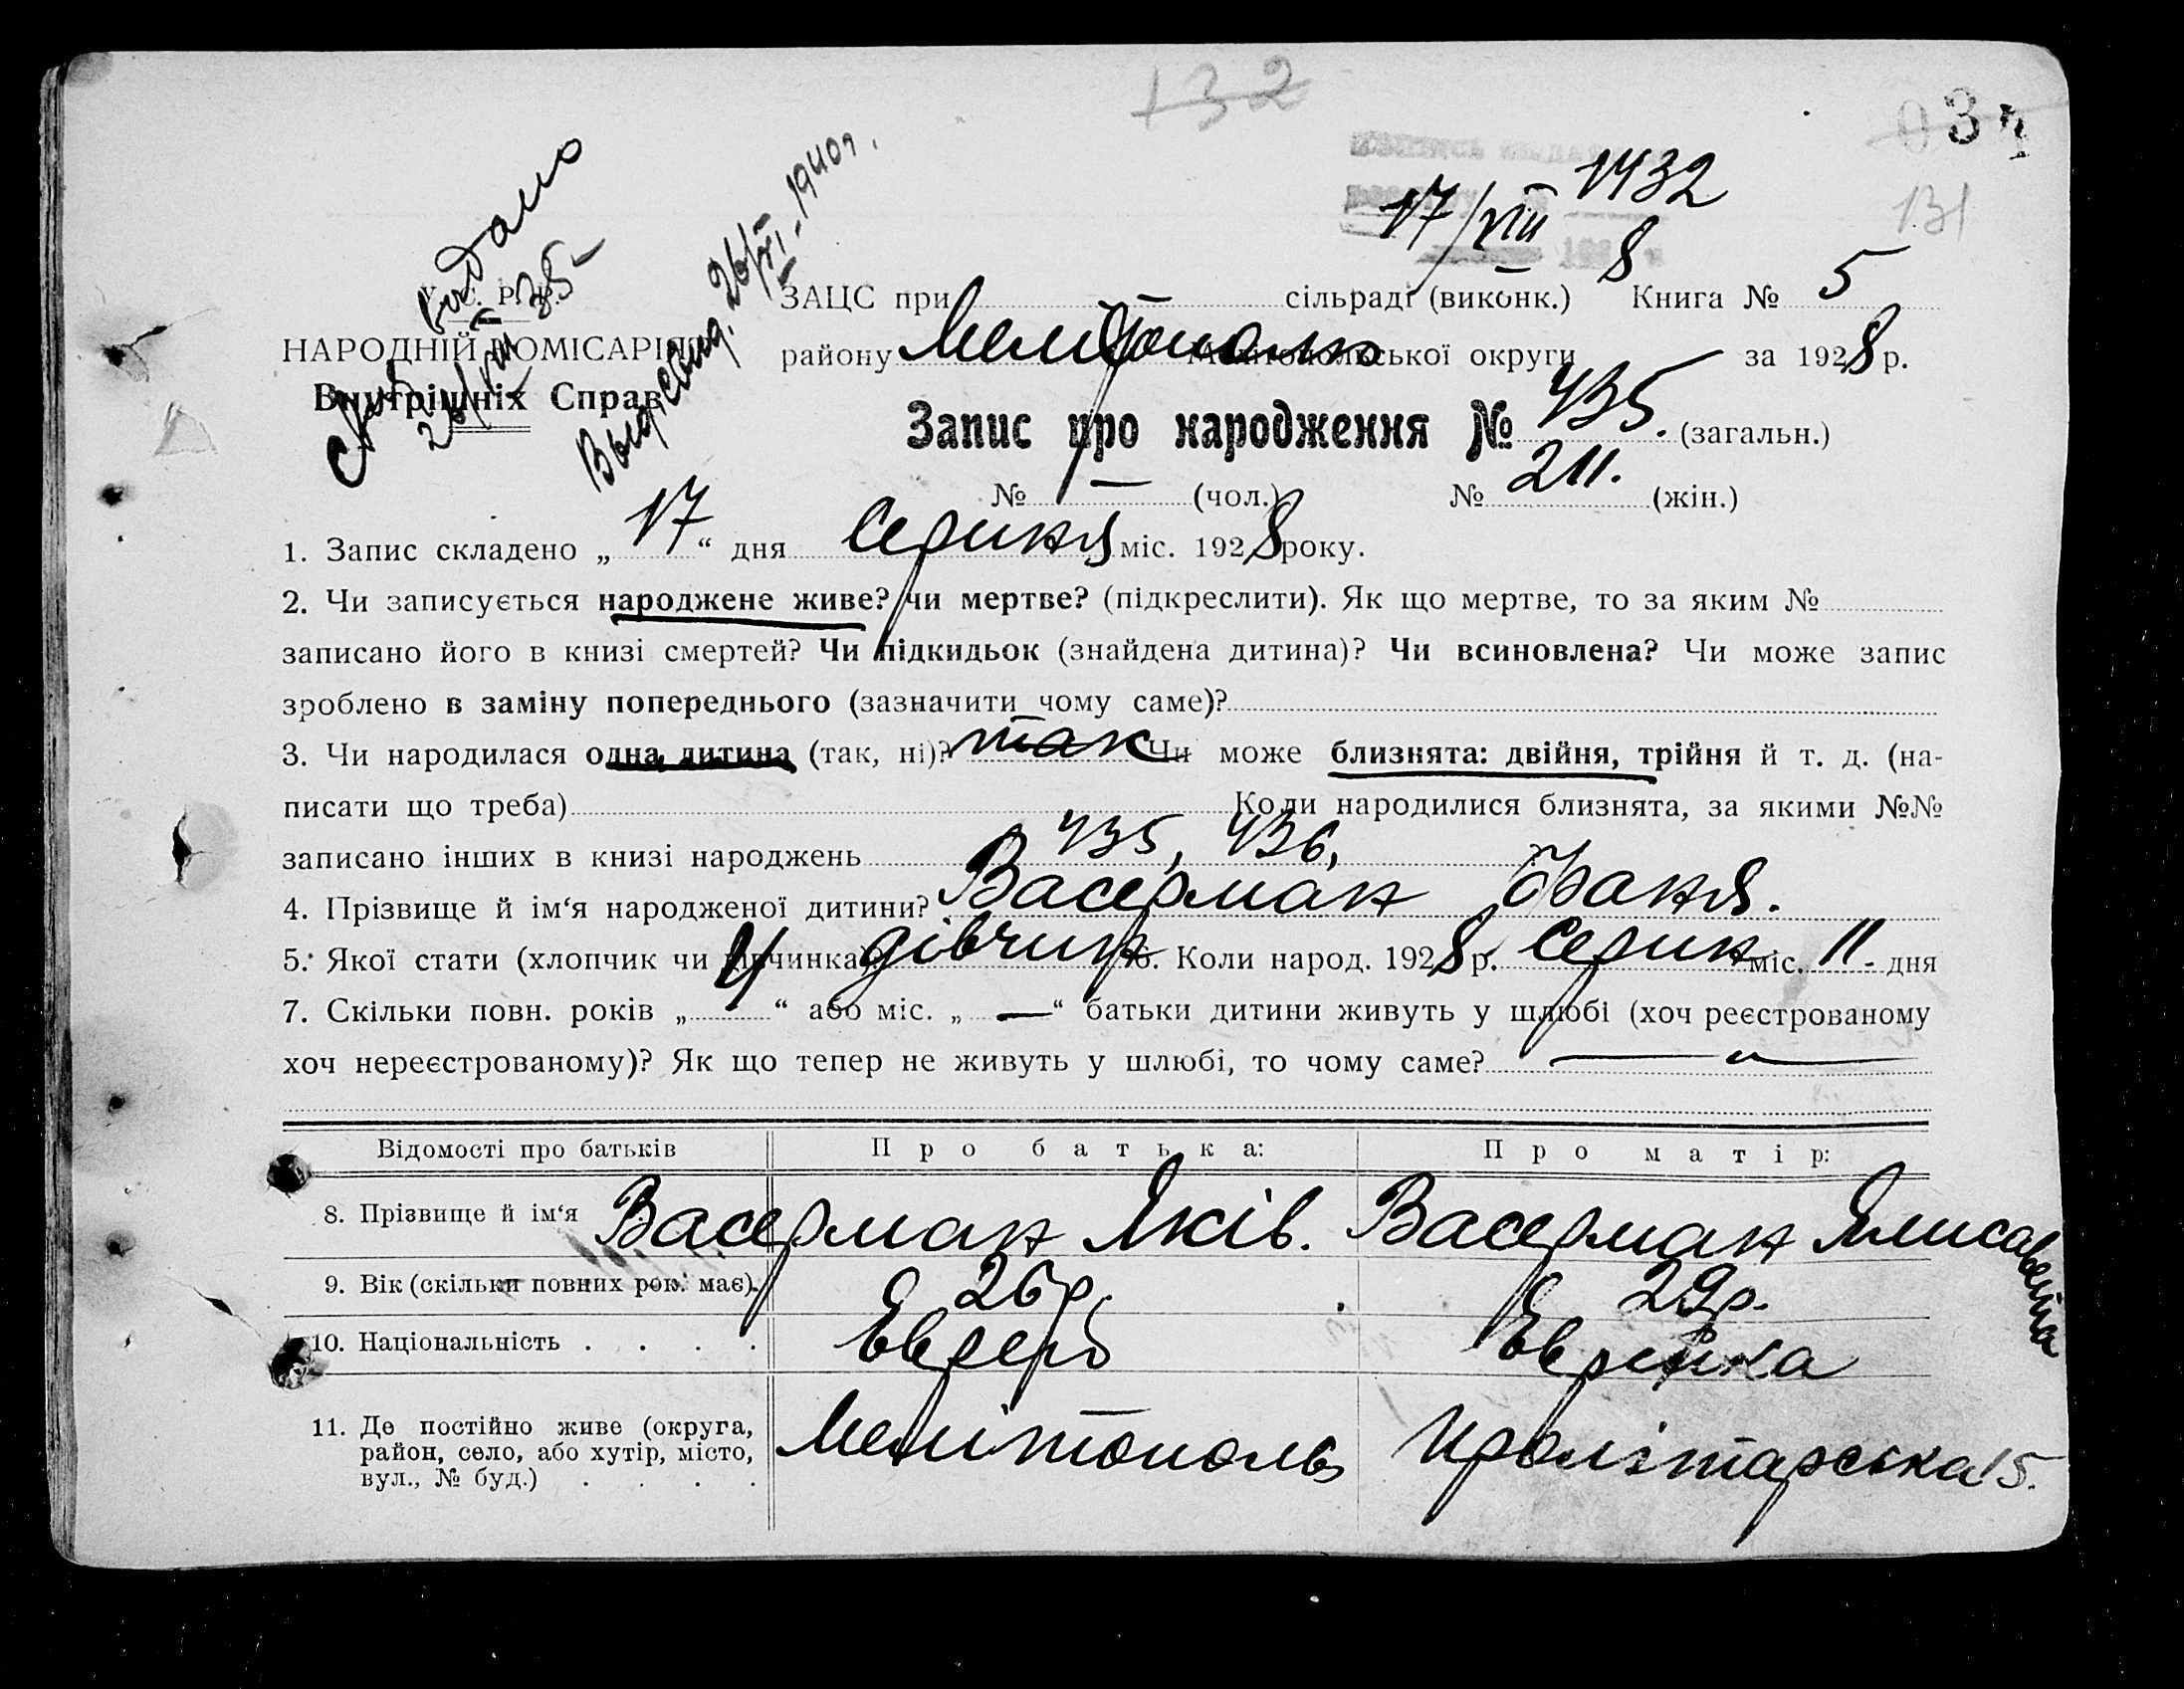 132
034
131
1432
17/VIII 8
видано
26/VIII 35
26/XI-1940г.
У.С.Р.Р.
НАРОДНІЙ КОМІСАРІЯТ
Внутрішніх Справ
ЗАЦС при сільраді (виконк.) Книга № 5
району Мелітополь Мелітопольської округи за 1928 р.
Запис про народження № 435. (загальн.)
№ — (чол.) № 211. (жін.)
1. Запис складено „ 17 “ дня Серпня міс. 1928 року.
2. Чи записується народжене живе? чи мертве? (підкреслити). Як що мертве, то за яким №
записано його в книзі смертей? Чи підкидьок (знайдена дитина)? Чи всиновлена? Чи може запис
зроблено в заміну попереднього (зазначити чому саме)?
3. Чи народилася одна дитина (так, ні)? так Чи може близнята: двійня, трійня й т. д. (на-
писати що треба) Коли народилися близнята, за якими №№
записано інших в книзі народжень 435, 436,
4. Прізвище й ім‘я народженої дитини? Васерман Фаня.
5. Якої стати (хлопчик чи дівчинка) дівчин 6. Коли народ. 1928 р. Серпн міс. 11 - дня
7. Скільки повн. років „ 4 “ або міс. „ — “ батьки дитини живуть у шлюбі (хоч реєстрованому
хоч нереєстрованому)? Як що тепер не живуть у шлюбі, то чому саме?
Відомості про батьків Про батька: Про матір:
8. Прізвище й ім‘я Васерман Яків. Васерман Єлисавета
9. Вік (скільки повних рок. має). 26 р. 29 р.
10. Національність . . . . Єврей Єврейка
11. Де постійно живе (округа,
район, село, або хутір, місто,
вул., № буд.) . . . . Мелітополь Пролітарська 15.